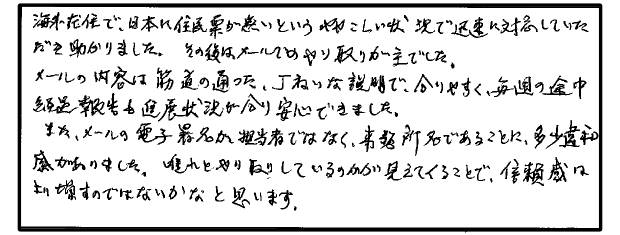 海外在住で、日本に住民票が無いというややこしい状況で迅速に対応していた
だき助かりました。その後はメールでのやり取りが主でした。
メールの内容は筋道の通った、丁ねいな説明で、分りやすく、毎週の途中
経過報告も進展状況が分り安心できました。
また、メールの電子署名が担当者ではなく、事務所名であることに、多少違和
感がありました。誰れとやり取りしているのかが見えてくることで、信頼感は
より増すのではないかなと思います。